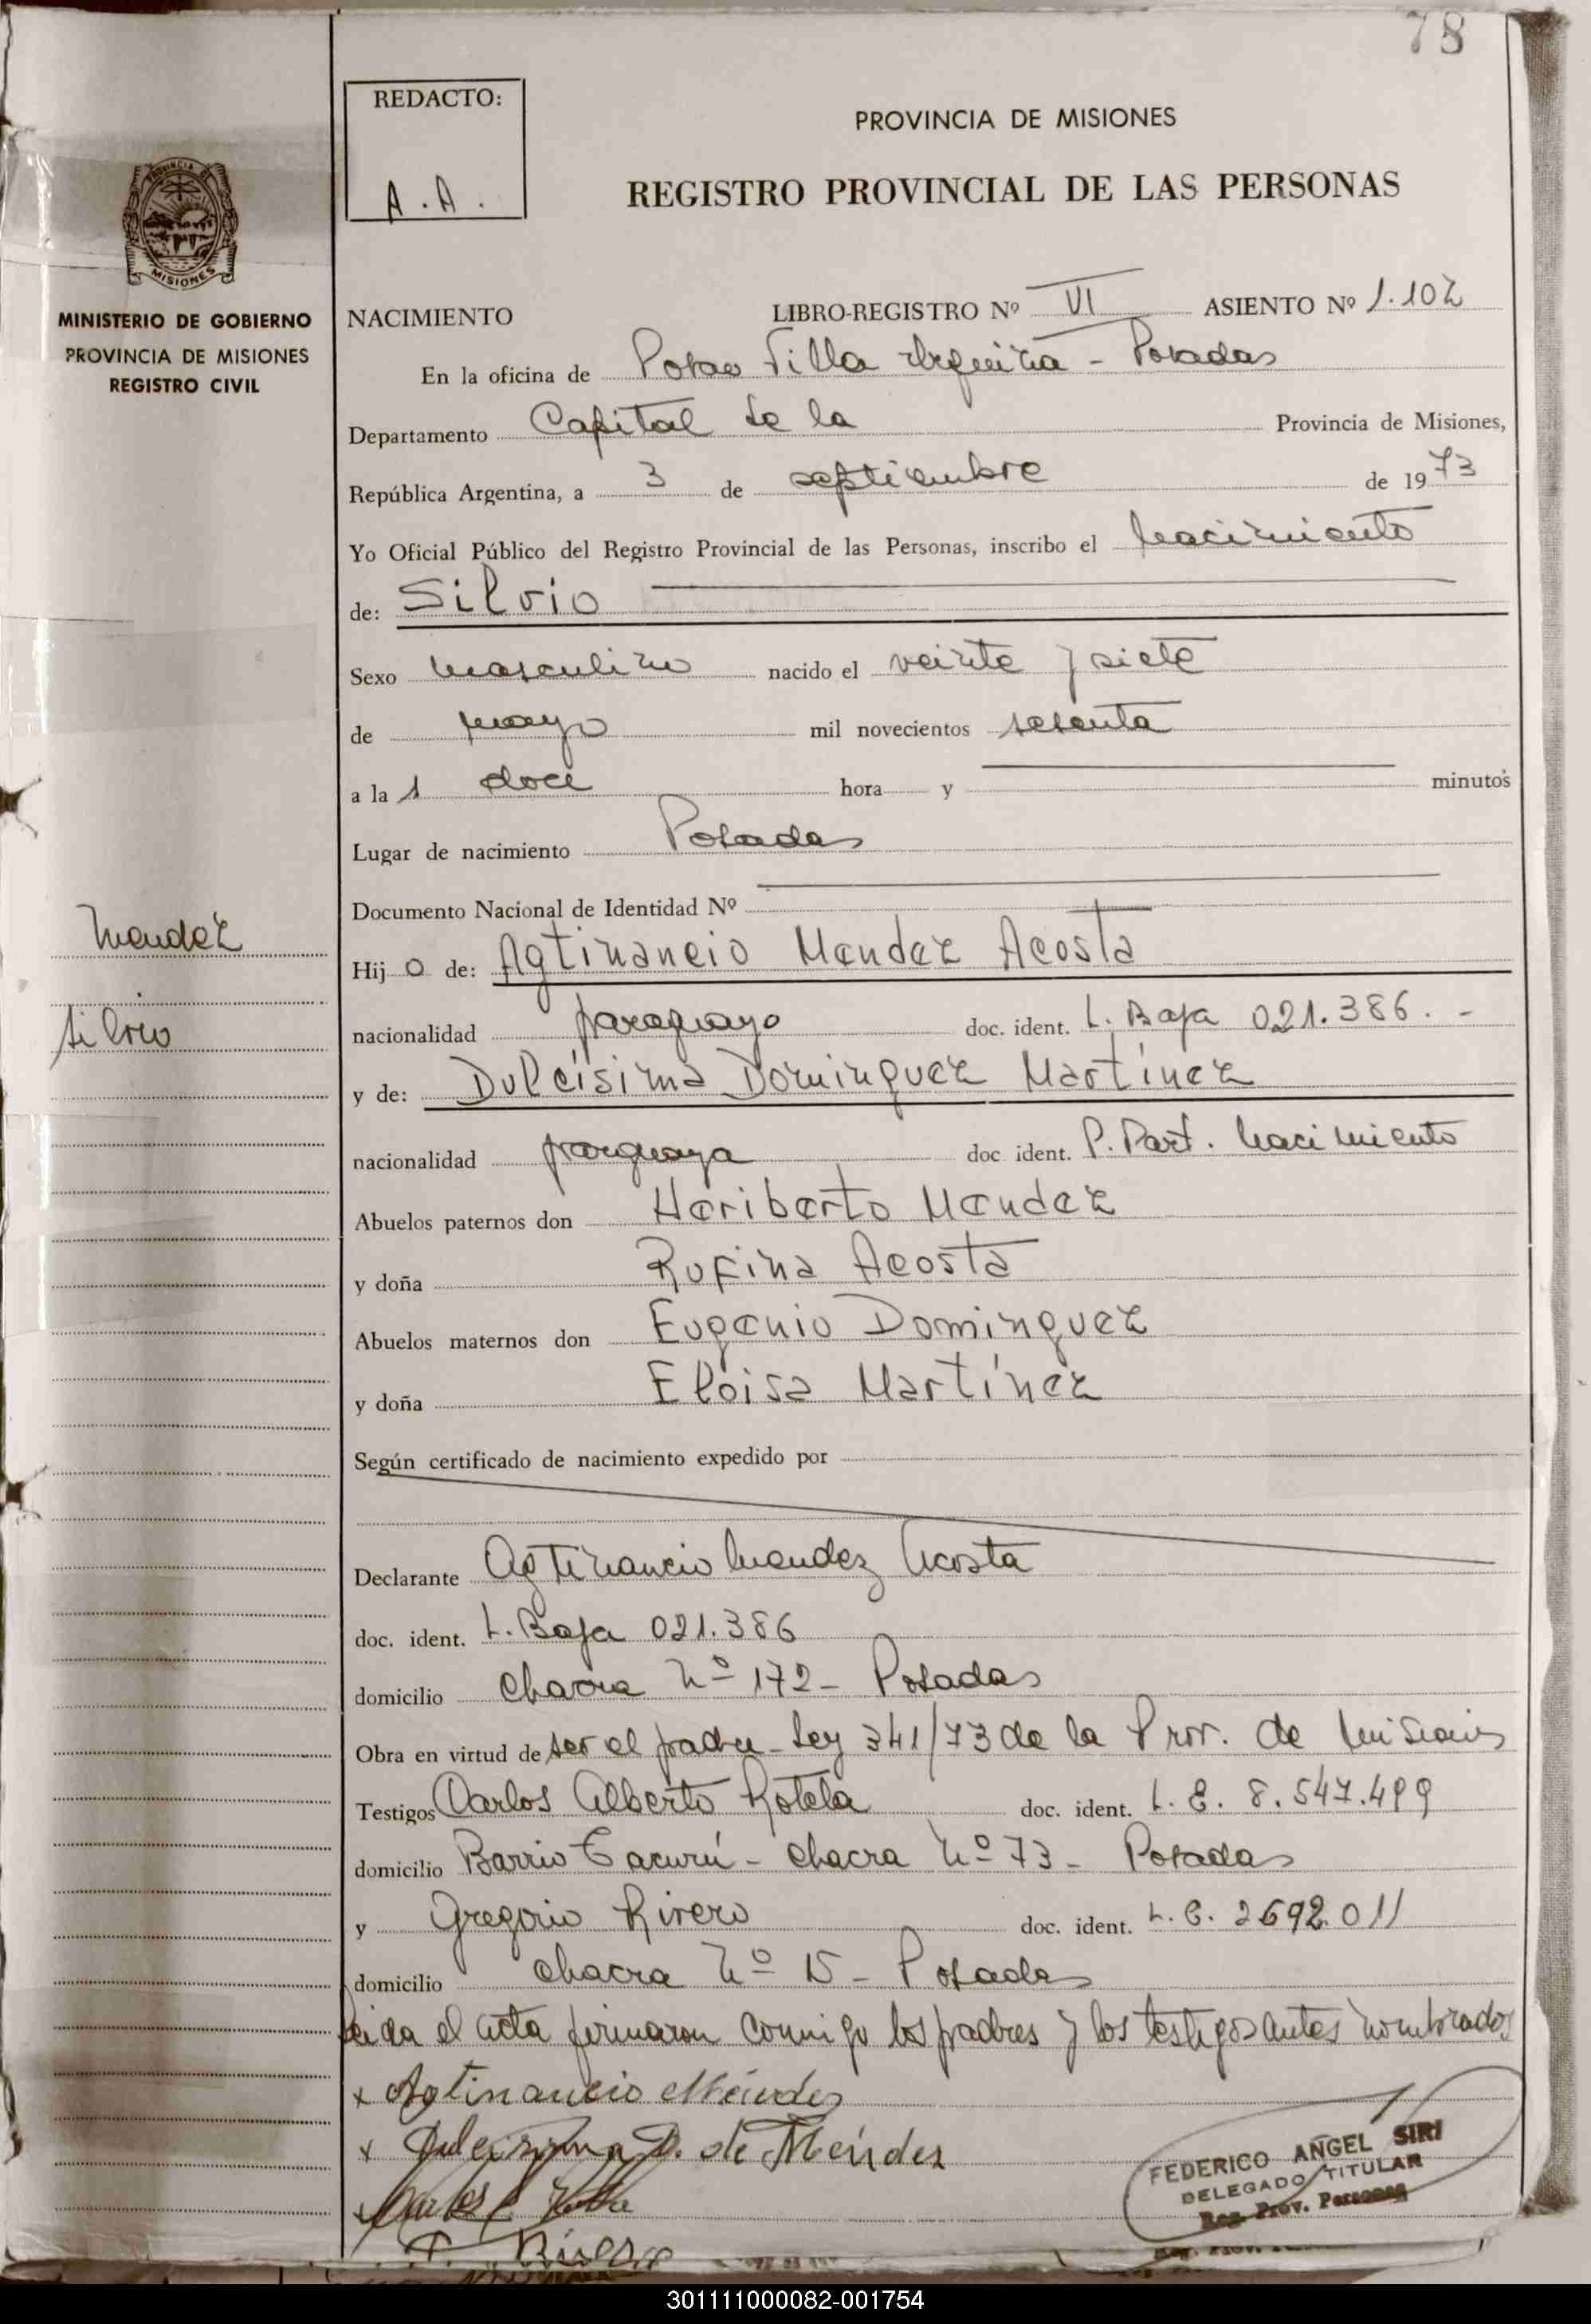 78
REDACTO:
A.A.
PROVINCIA DE MISIONES
REGISTRO PROVINCIAL DE LAS PERSONAS
PROVINCIA DE
MISIONES
MINISTERIO DE GOBIERNO
PROVINCIA DE MISIONES
REGISTRO CIVIL
NACIMIENTO LIBRO-REGISTRO Nº VI ASIENTO Nº 1.102
En la oficina de Villa Urquiza - Posadas
Departamento Capital de la Provincia de Misiones,
República Argentina, a 3 de septiembre de 1973
Yo Oficial Público del Registro Provincial de las Personas, inscribo el nacimiento
de: Silvio
Sexo masculino nacido el veinte y siete
de mayo mil novecientos sesenta
a la s doce hora y minutos
Lugar de nacimiento Posadas
Documento Nacional de Identidad Nº
Mendez
Silvio
Hijo de: Agtinancio Mendez Acosta
nacionalidad paraguayo doc. ident. L. Baja 021.386.-
y de: Dulcísima Dominguez Martínez
nacionalidad paraguaya doc ident. P. Part. Nacimiento
Abuelos paternos don Heriberto Mendez
y doña Rufina Acosta
Abuelos maternos don Eugenio Dominguez
y doña Eloisa Martínez
Según certificado de nacimiento expedido por
Declarante Agtinancio Mendez Acosta
doc. ident. L. Baja 021.386
domicilio Chacra Nº 172 - Posadas
Obra en virtud de ser el padre - Ley 341/73 de la Prov. de Misiones
Testigos Carlos Alberto Rotela doc. ident. L.E. 8.547.499
domicilio Barrio Tacurú - Chacra Nº 73 - Posadas
y Gregorio Rivero doc. ident. L.E. 2692.011
domicilio Chacra Nº 15 - Posadas
Leida el acta firmaron conmigo los padres y los testigos antes nombrados
x Agtinancio Méndez
x Dulcisima D. de Méndez
FEDERICO ANGEL SIRI
DELEGADO TITULAR
Reg. Prov. Personas
301111000082-001754